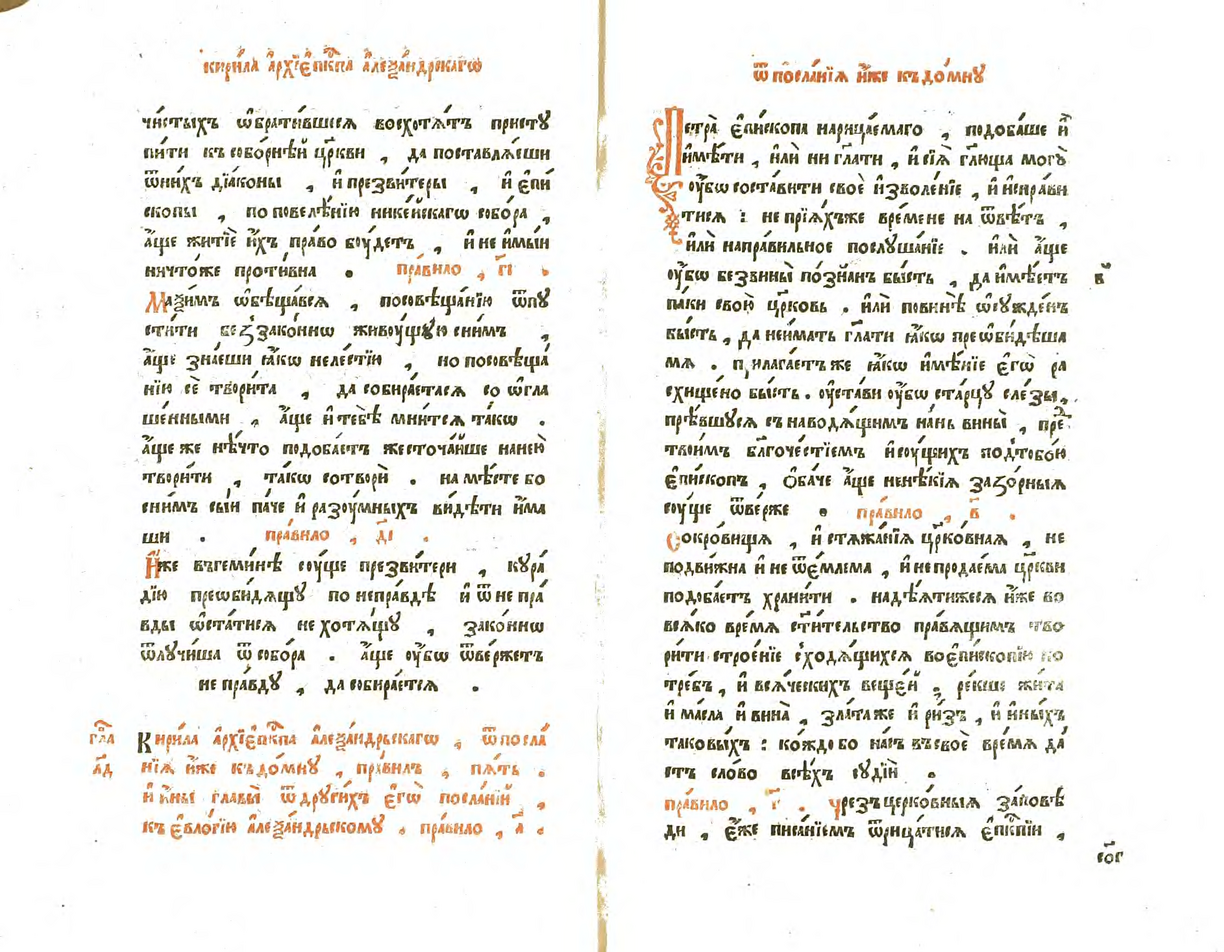 кирила а҆рхїе҆пкⷭ҇па а҆леѯа́ндрскагѡ
чи́стыхъ ѡ҆брати́вшисѧ восхотѧ́тъ пристꙋ
пи́ти къ собо́рнѣй цр҃кви , да поставлѧ́еши
ѿни́хъ дїа́коны , и҆ презви́теры , и҆ є҆пи
скопы , по повелѣ́нїю нике́йскагѡ собо́ра ,
а҆́ще житїѐ и҆́хъ пра́во боу́детъ , и҆ не и҆мы́и
ничто́же проти́вна . пра́вило , г҃і .
Маѯи́мъ ѡ҆бѣща́всѧ , посовѣща́нїю ѿпꙋ
сти́ти беꙁꙁако́ннѡ живоу́щꙋю сни́мъ ,
а҆́ще зна́еши ꙗ҆́кѡ неле́стїю , но посовѣща́
нїю сѐ твори́та , да собира́етасѧ со ѡ҆гла
ше́нными , а҆́ще и҆ тебѣ̀ мни́тсѧ та́кѡ .
а҆́ще же нѣ́что подоба́етъ жесточа́йше нанею̀
твори́ти , та́кѡ сотворѝ . на мѣ́сте бо
сни́мъ сы́и па́че и҆ разоу́мныхъ ви́дѣти и҆́ма
ши . пра́вило , д҃і .
И҆́же въгеми́нѣ соу́ще презви́тери , кꙋра́
дїю преѡби́дѧщꙋ по непра́вдѣ и҆ ѿ не пра́
вды ѡ҆ста́тисѧ не хотѧ́щꙋ , зако́ннѡ
ѿлꙋчи́ша ѿ собо́ра . а҆́ще оу҆́бѡ ѿве́ржетъ
не пра́вдꙋ , да собира́етсѧ .
гла̑
л҃д
Кири́ла а҆рхїе҆пкⷭ҇па а҆леѯа́ндрьскагѡ , ѿ посла́
нїѧ и҆́же къ до́мнꙋ , пра́вилъ , пѧ́ть .
и҆ и҆ны̀ главы̀ ѿ дрꙋги́хъ є҆гѡ̀ посла́нїй ,
къ є҆вло́гїю а҆леѯа́ндрьскомꙋ . пра́вило , а҃ .
ѿ посла́нїѧ и҆́же къ до́мнꙋ
Петра̀ є҆пи́скопа нарица́емаго , подоба́ше и҆̀
и҆мѣ́ти , и҆лѝ ни гл҃ати , и҆ сїѧ̀ гл҃юща могꙋ̀
оу҆́бѡ соста́вити своѐ и҆зволе́нїе , и҆ и҆спра́ви
тисѧ : не прїѧ́хъже вре́мене на ѿвѣ́тъ ,
и҆лѝ напра́вильное послꙋша́нїе . и҆лѝ а҆́ще
оу҆́бѡ безвины̀ по́знанъ бы́сть , да и҆мѣ́етъ
в҃
па́ки свою̀ цр҃ковь . и҆лѝ пови́нѣ ѡ҆сꙋжде́нъ
бы́сть , да не и҆́мать гл҃ати ꙗ҆́кѡ преѡби́дѣша
мѧ . прилага́етъ же ꙗ҆́кѡ и҆мѣ́нїе є҆гѡ̀ ра
схище́но бы́сть . оу҆ста́ви оу҆́бѡ ста́рцꙋ сле́зы ,
прѣ́вшꙋсѧ съ наводѧ́щимъ на́нь вины̀ , преⷣ
твои́мъ бл҃гоче́стїемъ и҆ соу́щихъ под̾тобо́ю
є҆пи́скопъ , ѻ҆ба́че а҆́ще не нѣ́кїѧ зазо́рныѧ
соу́ще ѿве́рже . пра́вило , в҃ .
Сокро́вища , и҆ стѧжа́нїѧ цр҃ко́внаѧ , не
подви́жна и҆ не ѿе́млема , и҆ непродае́ма цр҃кви
подоба́етъ храни́ти . надѣ́ѧтижесѧ и҆́же во
всѧ́ко вре́мѧ ст҃и́тельство пра́вѧщимъ тво
ри́ти строе́нїе сходѧ́щихсѧ во є҆пископїю по
тре́бъ , и҆ всѧ́ческихъ веще́й , ре́кше жи́та
и҆ ма́сла и҆ вина̀ , зла́та же и҆ ри́зъ , и҆ и҆ны́хъ
таковы́хъ : ко́ждо бо на́съ въ своѐ вре́мѧ да́
стъ сло́во всѣ́хъ сꙋдїѝ .
пра́вило , г҃ . Чрезъ церко́вныѧ за́повѣ
ди , є҆́же писа́нїемъ ѿрица́тисѧ є҆пкⷭ҇пїи ,
со҃г